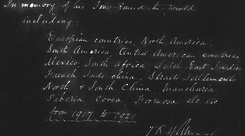 In memory of his Tour Round the World
including:
European countries, North America,
South America, Central American countries
Mexico, South Africa, Dutch East Indies
French Indo china, Straits Settlements
North & South China, Manchuria
Siberia, Corea, Formosa etc etc
for 1917 to 1921